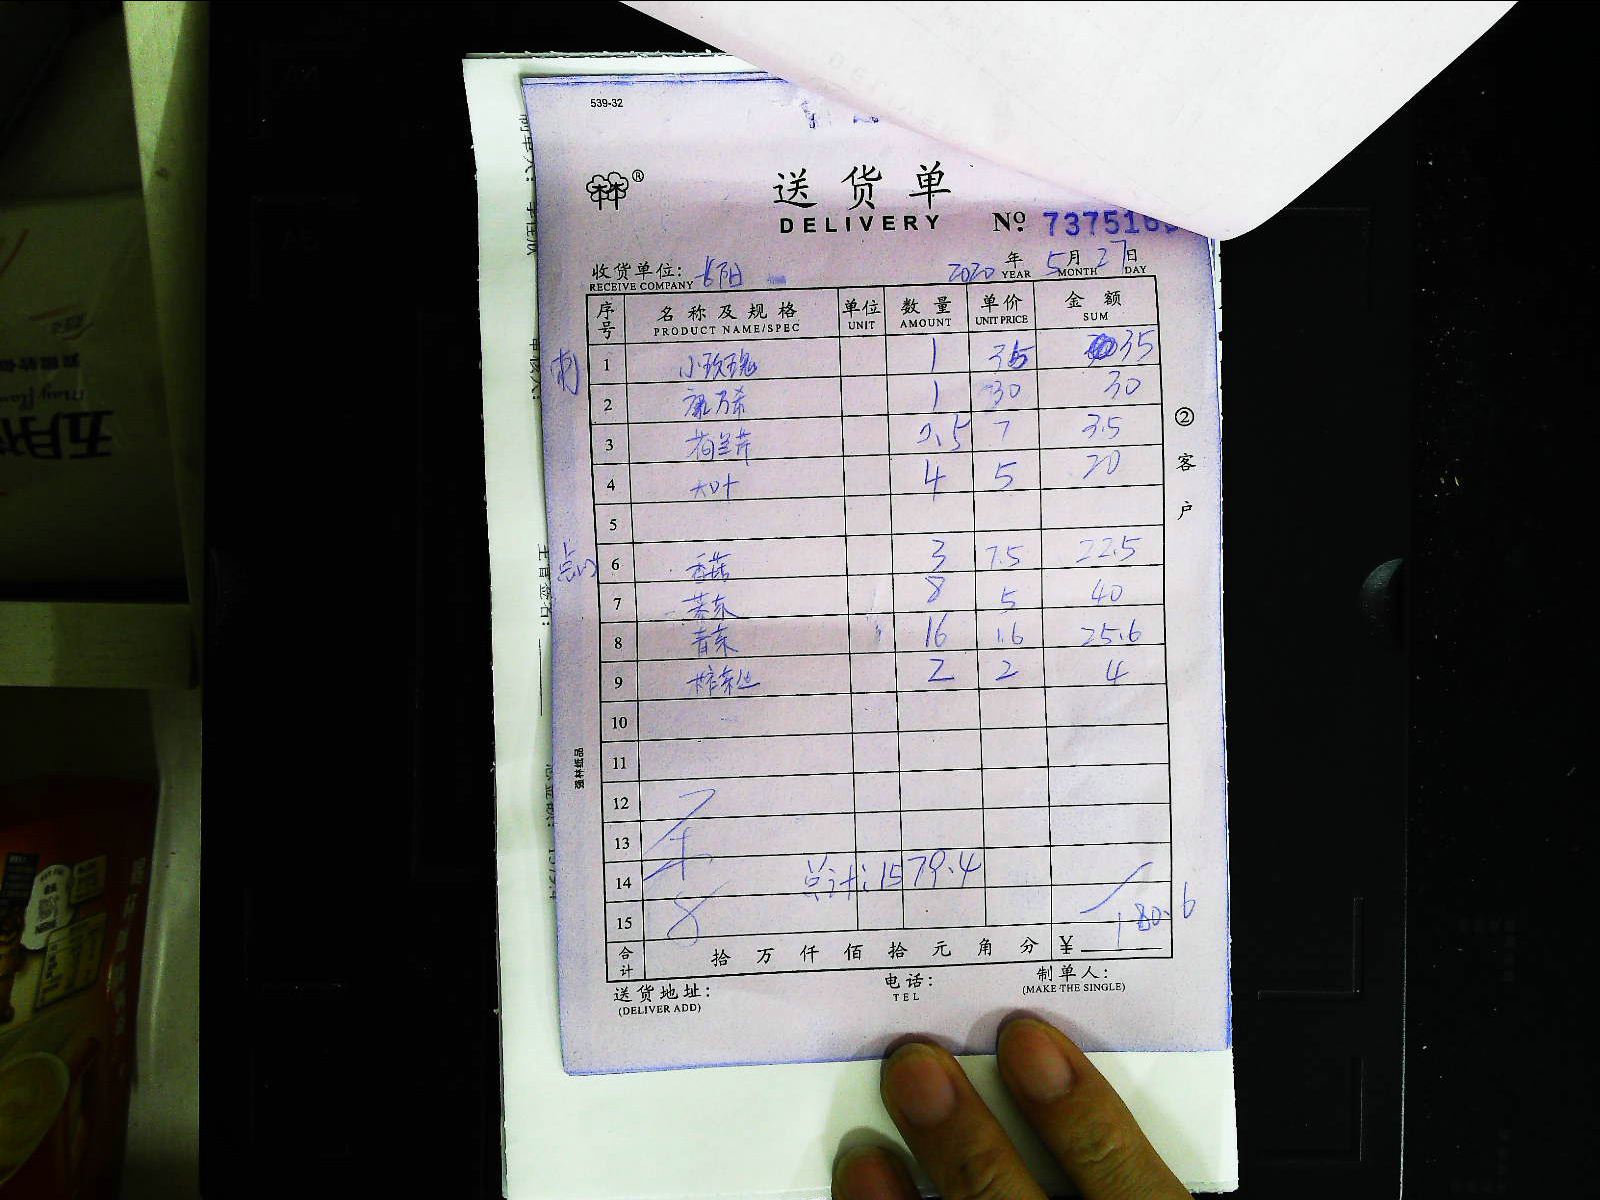 539-32
®
送货单
DELIVERY
№ 737516
收货单位:
RECEIVE COMPANY
2020 年 5 月 27 日
YEAR MONTH DAY
序号 名称及规格 单位 数量 单价 金额
PRODUCT NAME/SPEC UNIT AMOUNT UNIT PRICE SUM
1 小玫瑰 1 35 35
2 1 30 30
3 荷兰芹 0.5 7 3.5
4 大叶 4 5 20
5
6 香菇 3 7.5 22.5
7 8 5 40
8 青菜 16 1.6 25.6
9 榨菜丝 2 2 4
10
11
12
13
14 总计:1579.4
15
合计 拾 万 仟 佰 拾 元 角 分 ¥ 180.6
送货地址:
(DELIVER ADD)
电话:
TEL
制单人:
(MAKE THE SINGLE)
②客户
强林纸品